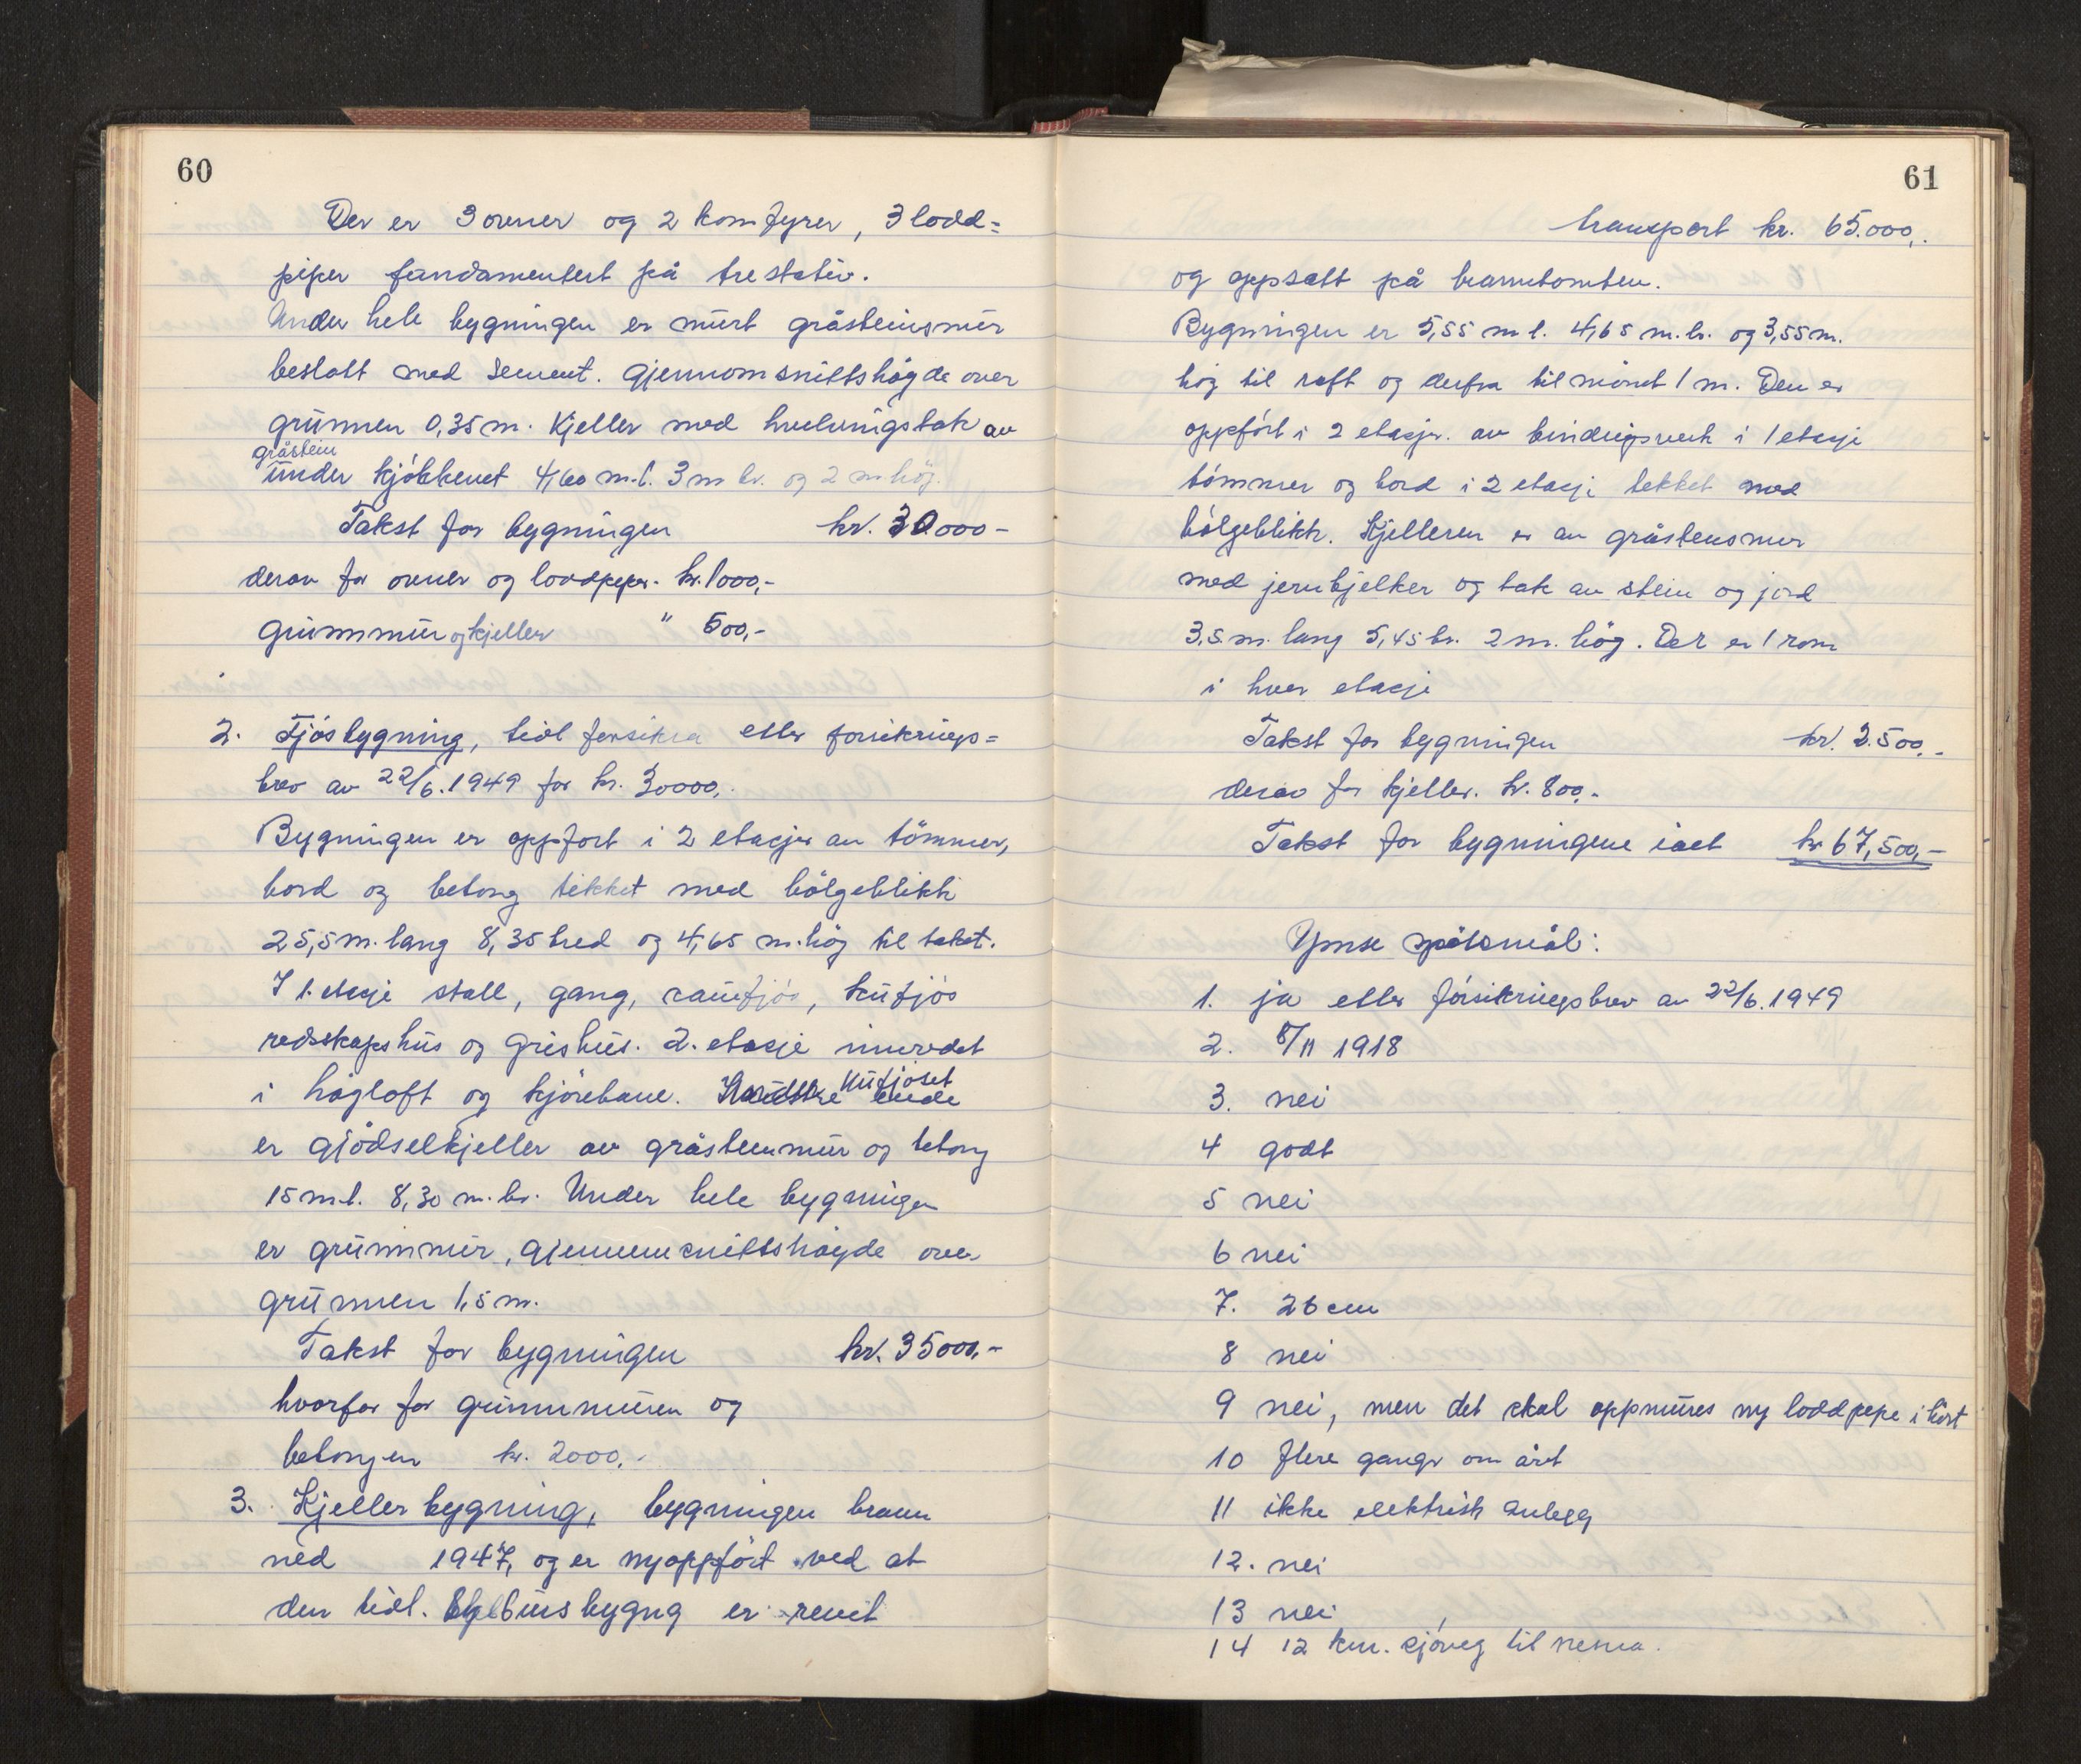 60
Der er 3 ovner og 2 komfyrer, 3 lodd=
piper fundamentert på trestativ.
Under hele bygningen er murt gråsteinsmur
beslått med Sement. Gjennomsnittshögde over
grunnen 0,35 m. Kjeller med hvelvingstak av
gråstein
under kjökkenet 4,60 m.l. 3 m br. og 2 m hög.
Takst for bygningen kr. 30.000-
derav for ovner og loddpiper. kr. 1000,-
grunnmur og kjeller " 500,-
2. Fjósbygning, tidl forsikra etter forsikrings=
brev av 22/6. 1949 for kr. 30000,-
Bygningen er oppfort i 2 etasjer av tömmer,
bord og betong tekket med bölgeblikk
25,5 m. lang 8,35 bred og 4,65 m. hög til taket.
I 1. etasje stall, gang, sauefjós, kufjós
redskapshus og grishus. 2. etasje innredet
i högloft og kjörebane. kufjóset
er gjödselkjeller av gråsteinmur og betong
15 m.l. 8,30 m. br. Under hele bygningen
er grunnmur, gjennemsnittshögde over
grunnen 1,5 m.
Takst for bygningen kr. 35000,-
hvorfor for grunnmuren og
betongen kr. 2000.-
3. Kjellerbygning, bygningen brann
ned 1947, og er nyoppfört ved at
den tidl. bygng er revet
61
transport kr. 65.000,.
og oppsatt på branntomten.
Bygningen er 5,55 m l. 4,65 m. br. og 3,55 m.
hög til raft og derfra til mönet 1 m. Den er
oppfört i 2 etasjer. av bindingsverk i 1 etasje
tömmer og bord i 2 etasje tekket med
bölgeblikk. Kjelleren er av gråstensmur
med jernbjelker og tak av stein og jord
3,5 m. lang 5,45 br. 2 m. hög. Der er 1 rom
i hver etasje
Takst for bygningen kr. 2.500,-
derav for kjeller. kr. 800,-
Takst for bygningene ialt kr 67,500,-
Ymse spörsmål:
1. ja etter fórsikringsbrev av 22/6. 1949
2. 8/11 1918
3. nei
4 godt
5 nei
6 nei
7. 26 cm
8 nei
9 nei, men det skal oppmures ny loddpipe i höst
10 flere ganger om året
11 ikke elektrisk anlegg
12. nei
13 nei
14 12 km. sjöveg til nesna.